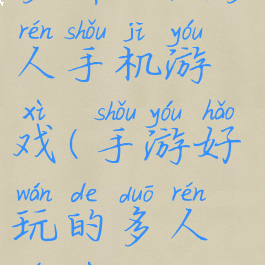 rén shǒu jī yóu
人手机游
xì shǒu yóu hǎo
戏(手游好
wán de duō rén
玩的多人